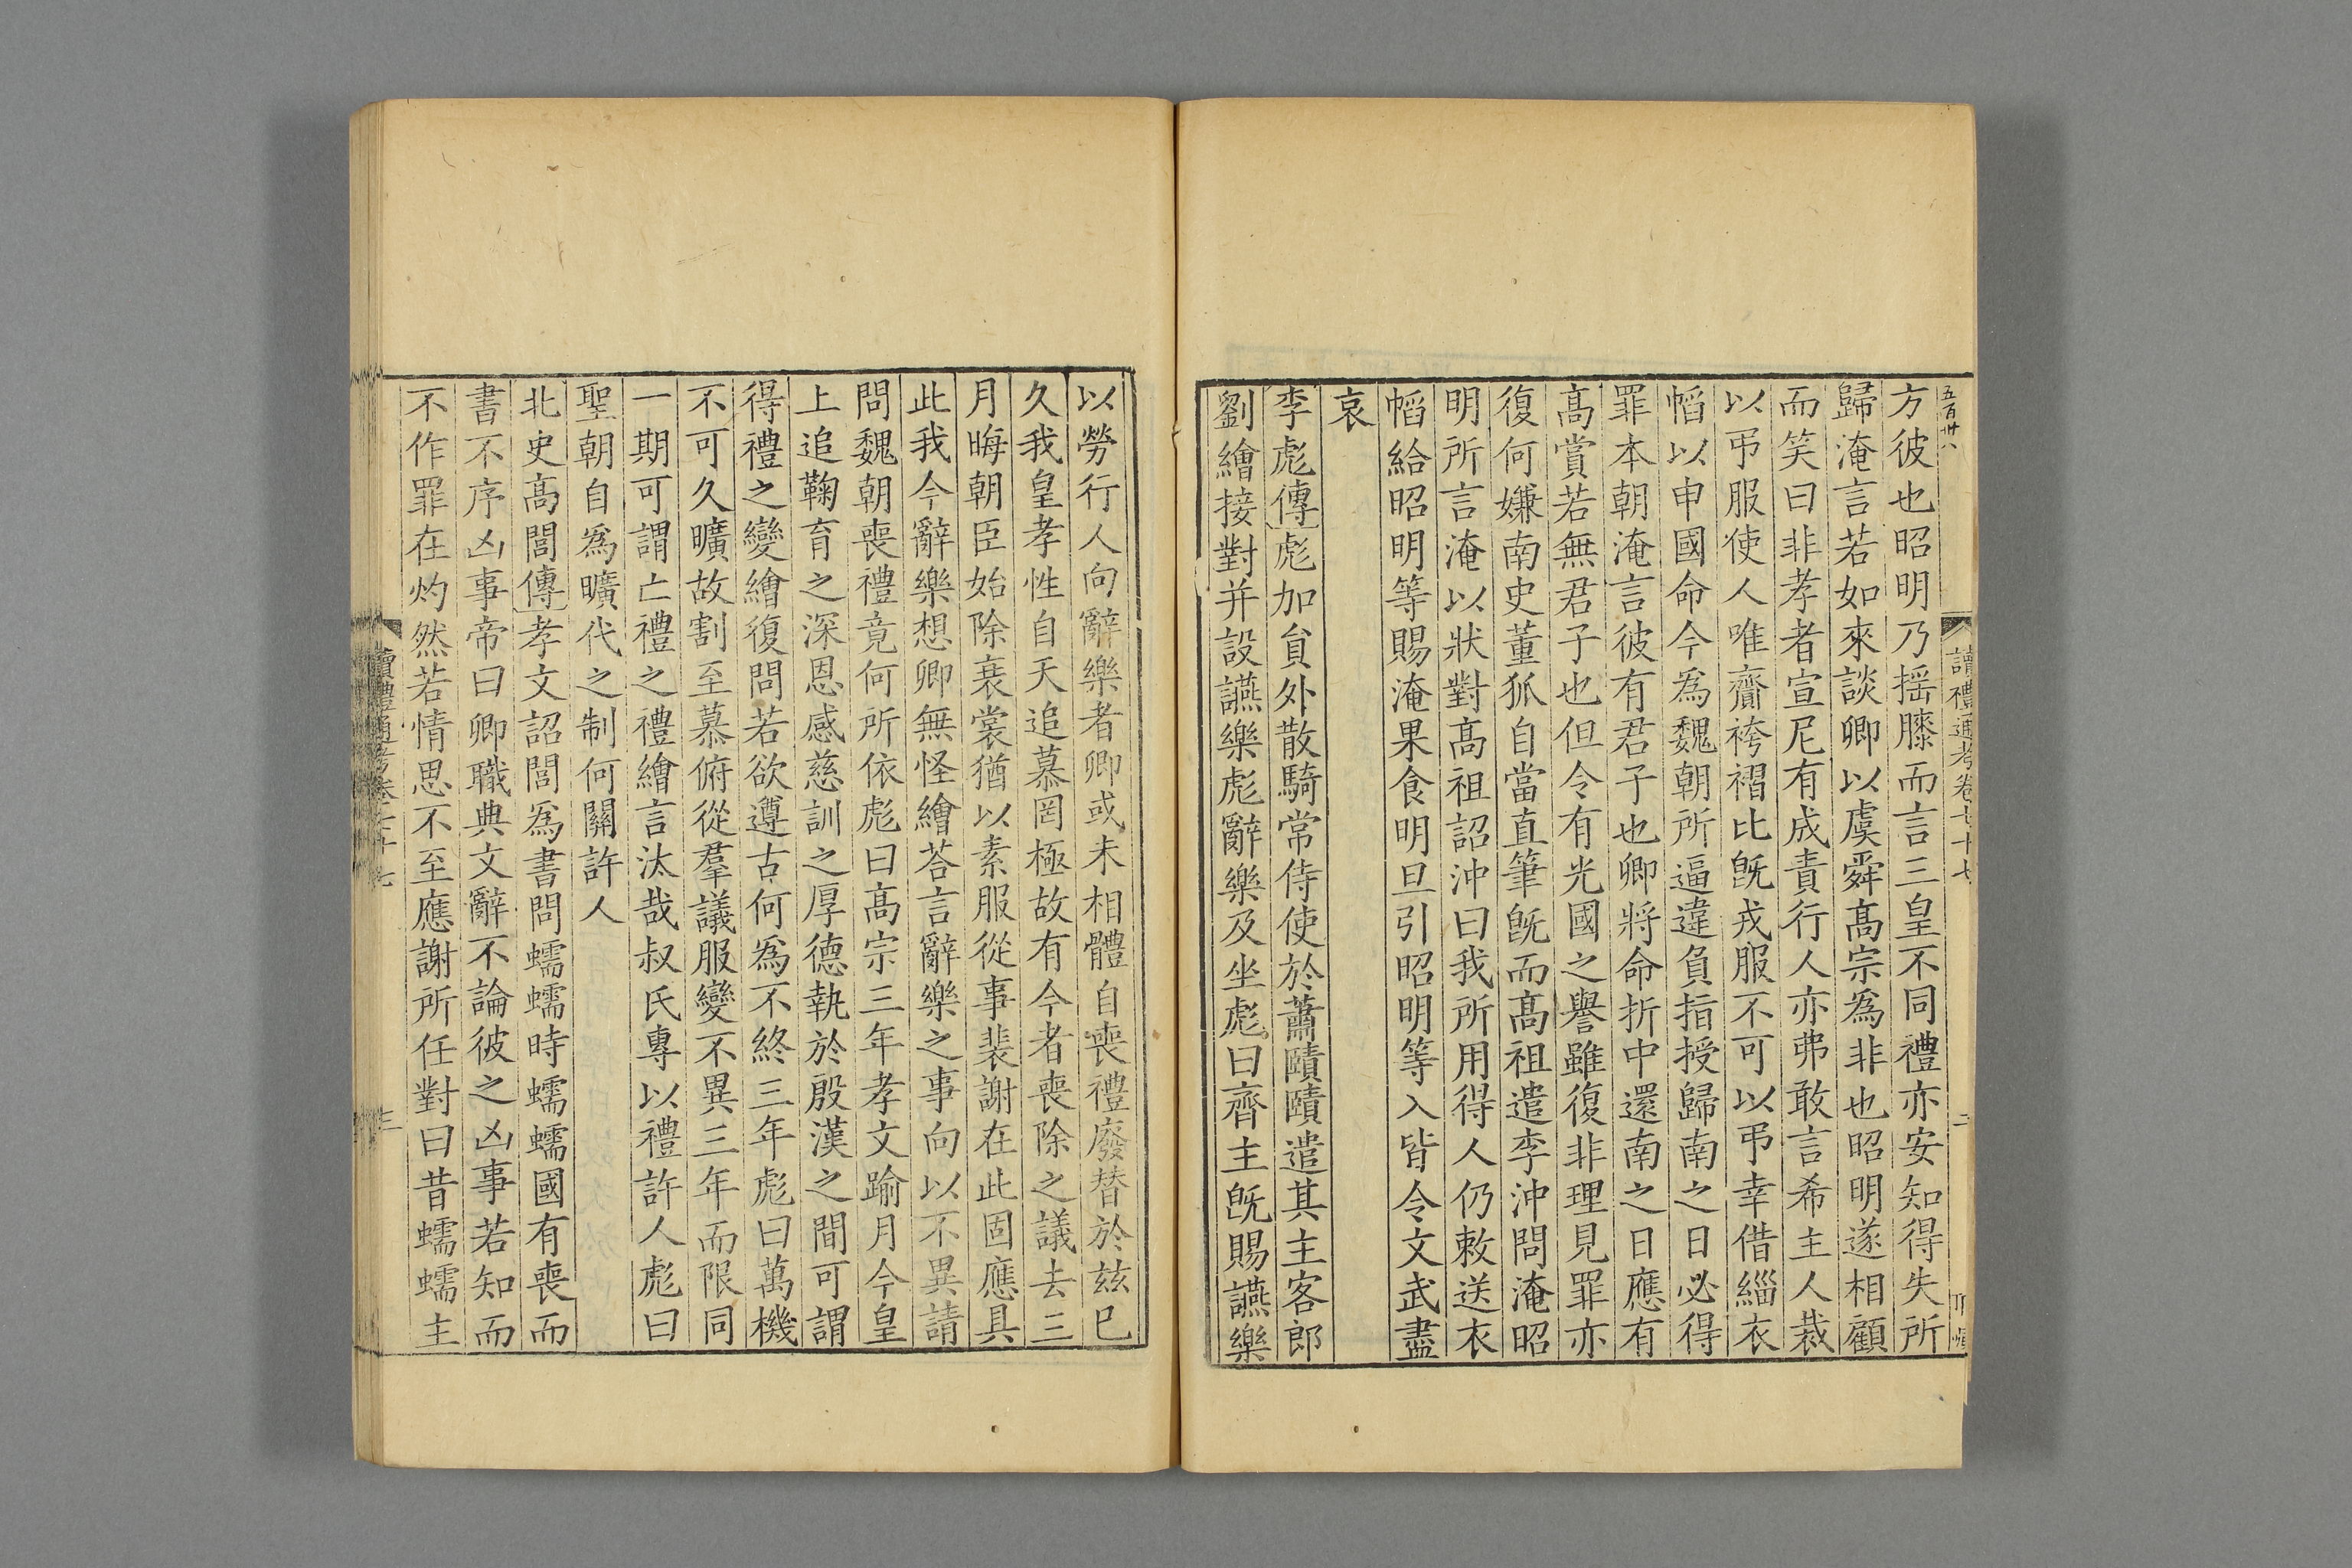 五百卅八
讀禮通考卷七十七
二
方彼也昭明乃搖膝而言三皇不同禮亦安知得失所
歸淹言若如來談卿以虞舜高宗為非也昭明遂相顧
而笑曰非孝者宣尼有成責行人亦弗敢言希主人裁
以弔服使人唯齎袴褶比旣戎服不可以弔幸借緇衣
幍以申國命今爲魏朝所逼違負指授歸南之日必得
罪本朝淹言彼有君子也卿將命折中還南之日應有
高賞若無君子也但令有光國之譽雖復非理見罪亦
復何嫌南史董狐自當直筆旣而高祖遣李沖問淹昭
明所言淹以狀對高祖詔沖曰我所用得人仍敕送衣
幍給昭明等賜淹果食明旦引昭明等入皆令文武盡
哀
李彪傳彪加貟外散騎常侍使於蕭賾賾遣其主客郎
劉繪接對并設讌樂彪辭樂及坐彪曰齊主旣賜讌樂
以勞行人向辭樂者卿或未相體自喪禮廢替於兹巳
久我皇孝性自天追慕罔極故有今者喪除之議去三
月晦朝臣始除衰裳猶以素服從事裴謝在此固應具
此我今辭樂想卿無怪繪荅言辭樂之事向以不異請
問魏朝喪禮竟何所依彪曰高宗三年孝文踰月今皇
上追鞠育之深恩感慈訓之厚德執於殷漢之間可謂
得禮之變繪復問若欲遵古何爲不終三年彪曰萬機
不可久曠故割至慕俯從羣議服變不異三年而限同
一期可謂亡禮之禮繪言汰哉叔氏專以禮許人彪曰
聖朝自爲曠代之制何關許人
北史高閭傳孝文詔閭爲書問蠕蠕時蠕蠕國有喪而
書不序凶事帝曰卿職典文辭不論彼之凶事若知而
不作罪在灼然若情思不至應謝所任對曰昔蠕蠕主
讀禮通考卷七十七
三